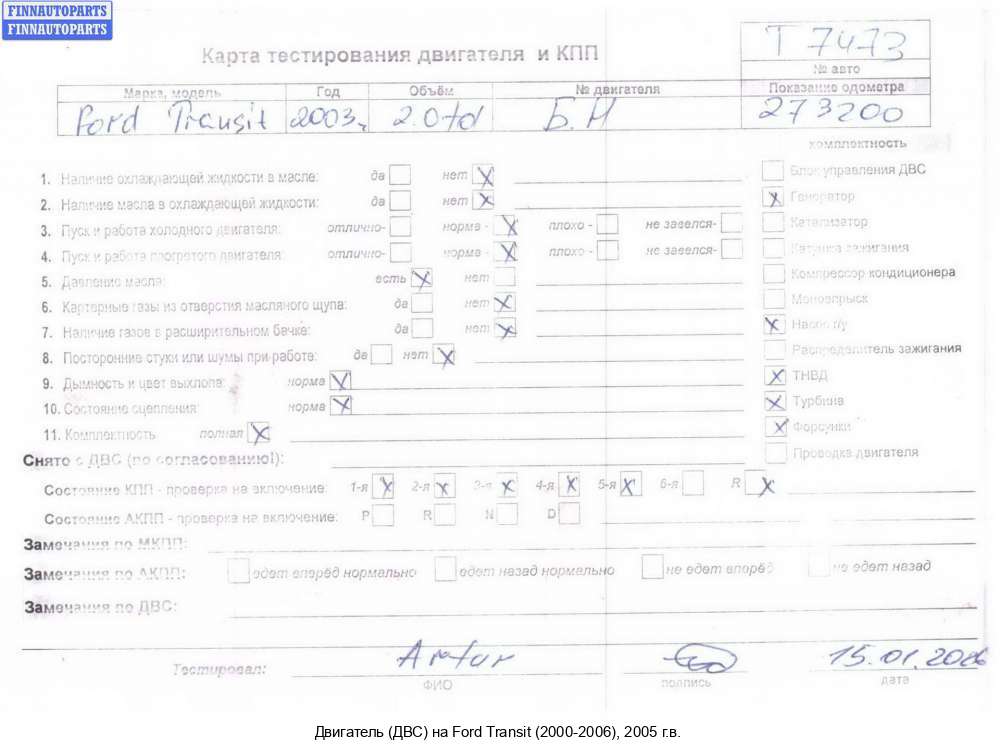 FINNAUTOPARTS
FINNAUTOPARTS
Карта тестирования двигателя и КПП
T 7473
№ авто
Марка, модель Год Объём № двигателя Показание одометра
Ford Transit 2003г 2.0td Б.Н 273200
комплектность
1. Наличие охлаждающей жидкости в масле: да нет X
Блок управления ДВС
2. Наличие масла в охлаждающей жидкости: да нет X
X Генератор
3. Пуск и работа холодного двигателя: отлично- норма - X плохо - не завелся-
Катализатор
4. Пуск и работа прогретого двигателя: отлично- норма - X плохо - не завелся-
Катушка зажигания
5. Давление масла: есть X нет
Компрессор кондиционера
6. Картерные газы из отверстия масляного щупа: да нет X
Моновпрыск
7. Наличие газов в расширительном бачке: да нет X
X Насос г/у
8. Посторонние стуки или шумы при работе: да нет X
Распределитель зажигания
9. Дымность и цвет выхлопа: норма X
X ТНВД
10. Состояние сцепления: норма X
X Турбина
11. Комплектность полная X
X Форсунки
Снято с ДВС (по согласованию!):
Проводка двигателя
Состояние КПП - проверка на включение: 1-я X 2-я X 3-я X 4-я X 5-я X 6-я R X
Состояние АКПП - проверка на включение: P R N D
Замечания по МКПП:
Замечания по АКПП: едет вперёд нормально едет назад нормально не едет вперёд не едет назад
Замечания по ДВС:
Тестировал: Artur 15.01.2026
ФИО подпись дата
Двигатель (ДВС) на Ford Transit (2000-2006), 2005 г.в.